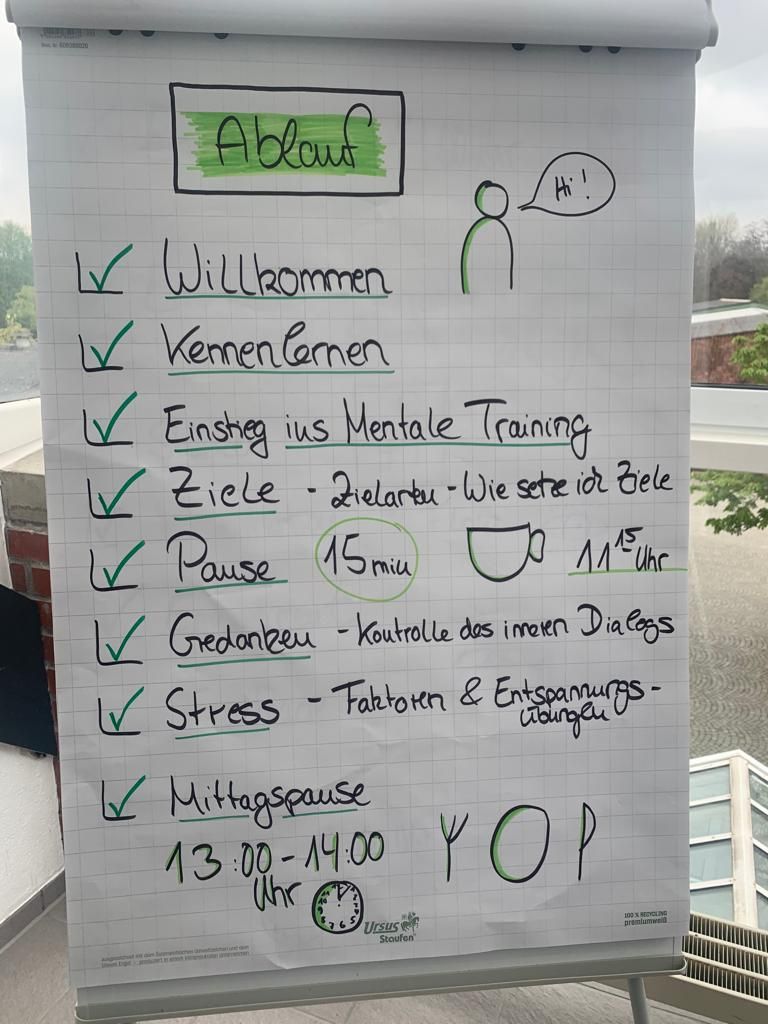 Ablauf
Hi!
Willkommen
Kennenlernen
Einstieg ins Mentale Training
Ziele - Zielarten - Wie setze ich Ziele
Pause 15 min 11 15 Uhr
Gedanken - Kontrolle des inneren Dialogs
Stress - Faktoren & Entspannungs-
übungen
Mittagspause
13:00 - 14:00
Uhr
Ursus
Staufen
100 % RECYCLING
premiumweiß